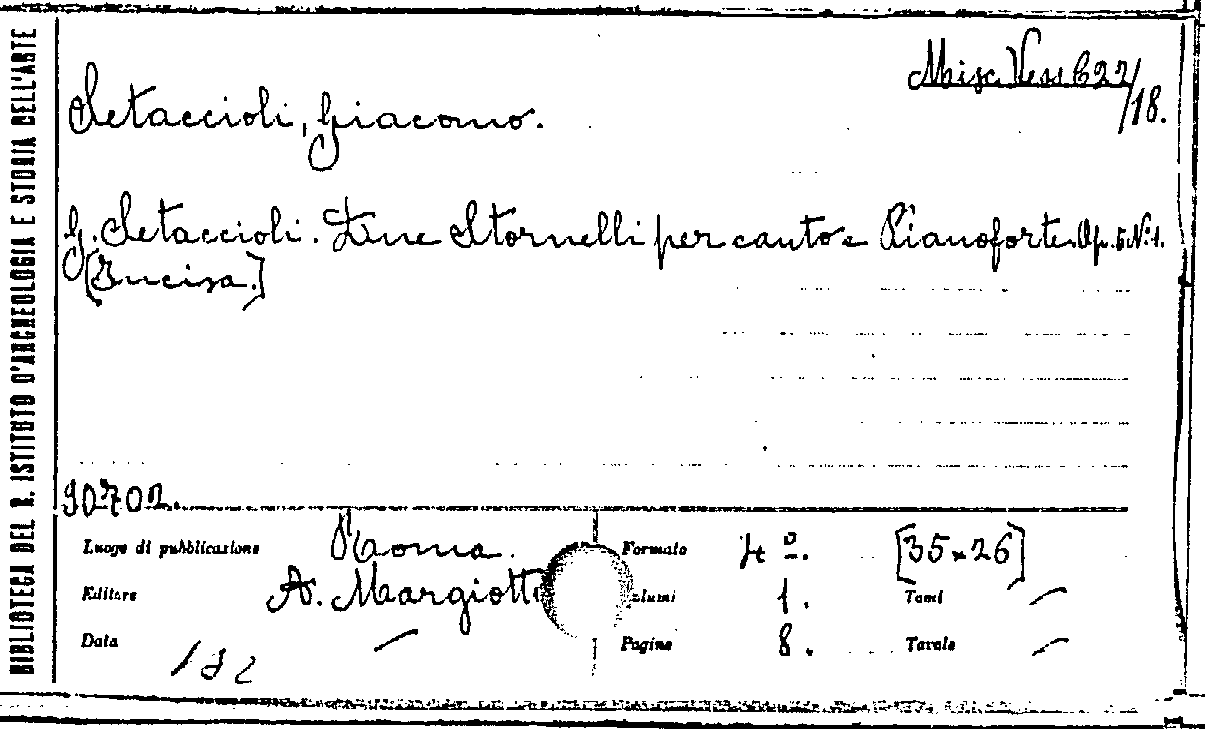 BIBLIOTECA DEL R. ISTITUTO D'ARCHEOLOGIA E STORIA DELL'ARTE
Misc. Vess 622/18.
Setaccioli, Giacomo.
G. Setaccioli. Due Stornelli per canto e Pianoforte. Op. 5 N. 1.
[Incisa.]
90702.
Luogo di pubblicazione Roma. Formato 4º. [35×26]
Editore A. Margiott lumi 1. Tomi –
Data – Pagine 8. Tavole –
182